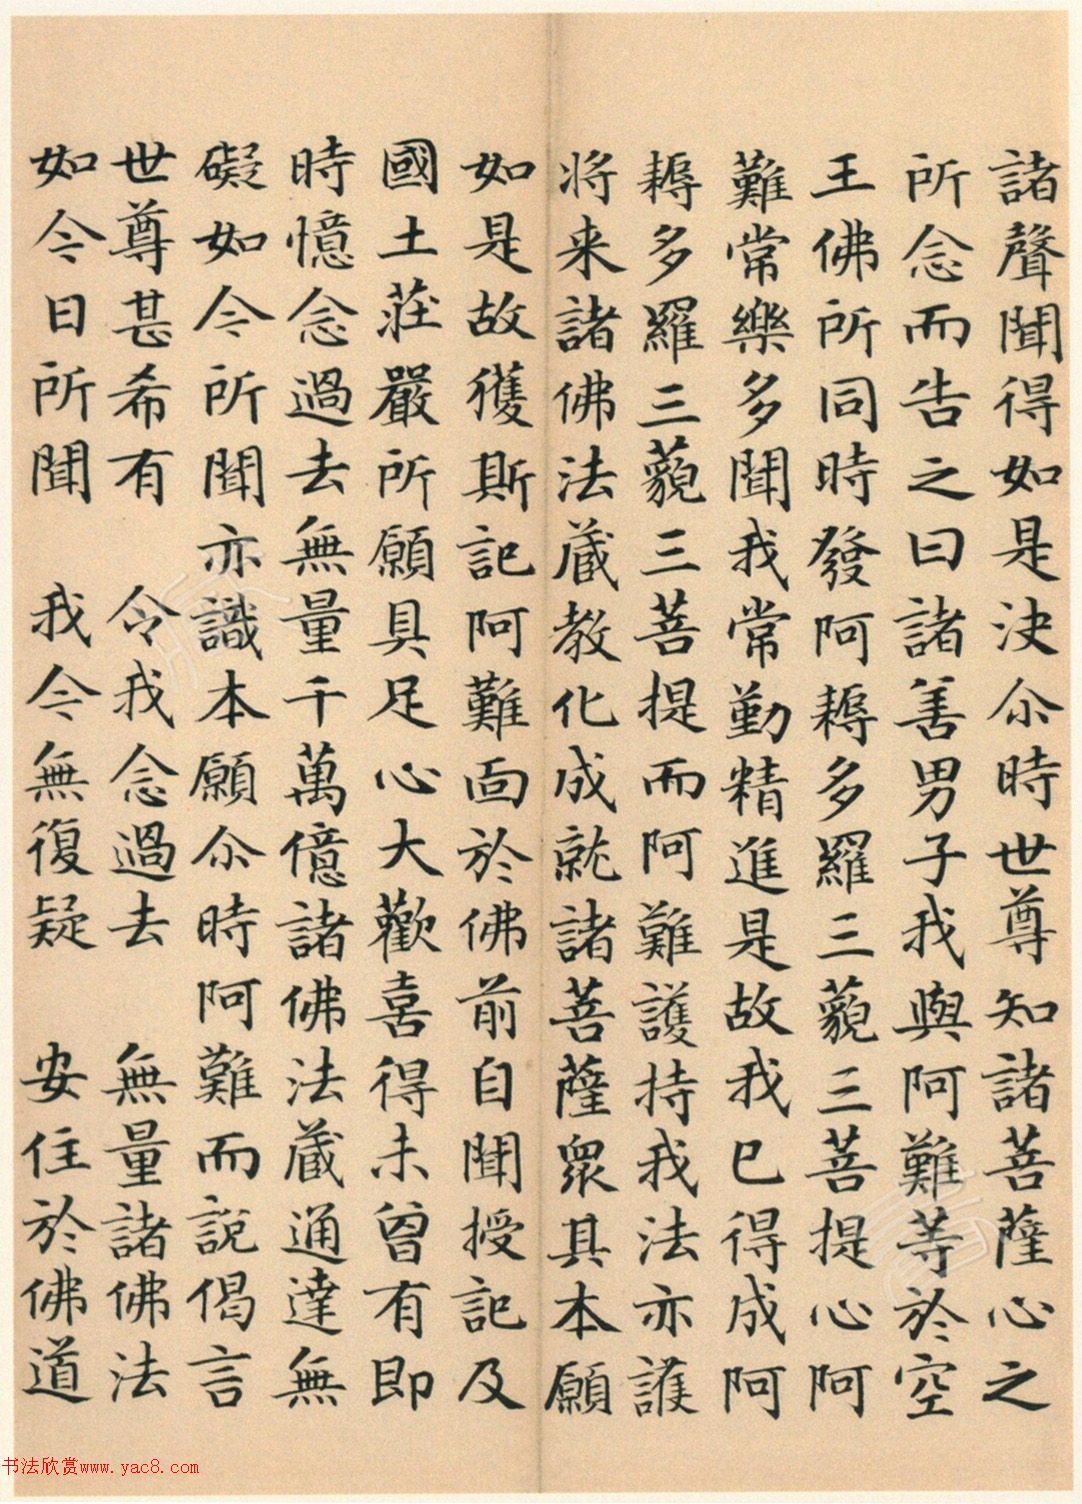 諸聲聞得如是決尒時世尊知諸菩薩心之
所念而告之曰諸善男子我與阿難等於空
王佛所同時發阿耨多羅三藐三菩提心阿
難常樂多聞我常勤精進是故我已得成阿
耨多羅三藐三菩提而阿難護持我法亦護
将来諸佛法蔵教化成就諸菩薩眾其本願
如是故獲斯記阿難面於佛前自聞授記及
國土莊嚴所願具足心大歡喜得未曾有即
時憶念過去無量千萬億諸佛法蔵通達無
礙如今所聞亦識本願尒時阿難而說偈言
世尊甚希有　令我念過去　無量諸佛法
如今日所聞　我今無復疑　安住於佛道
书法欣赏www.yac8.com